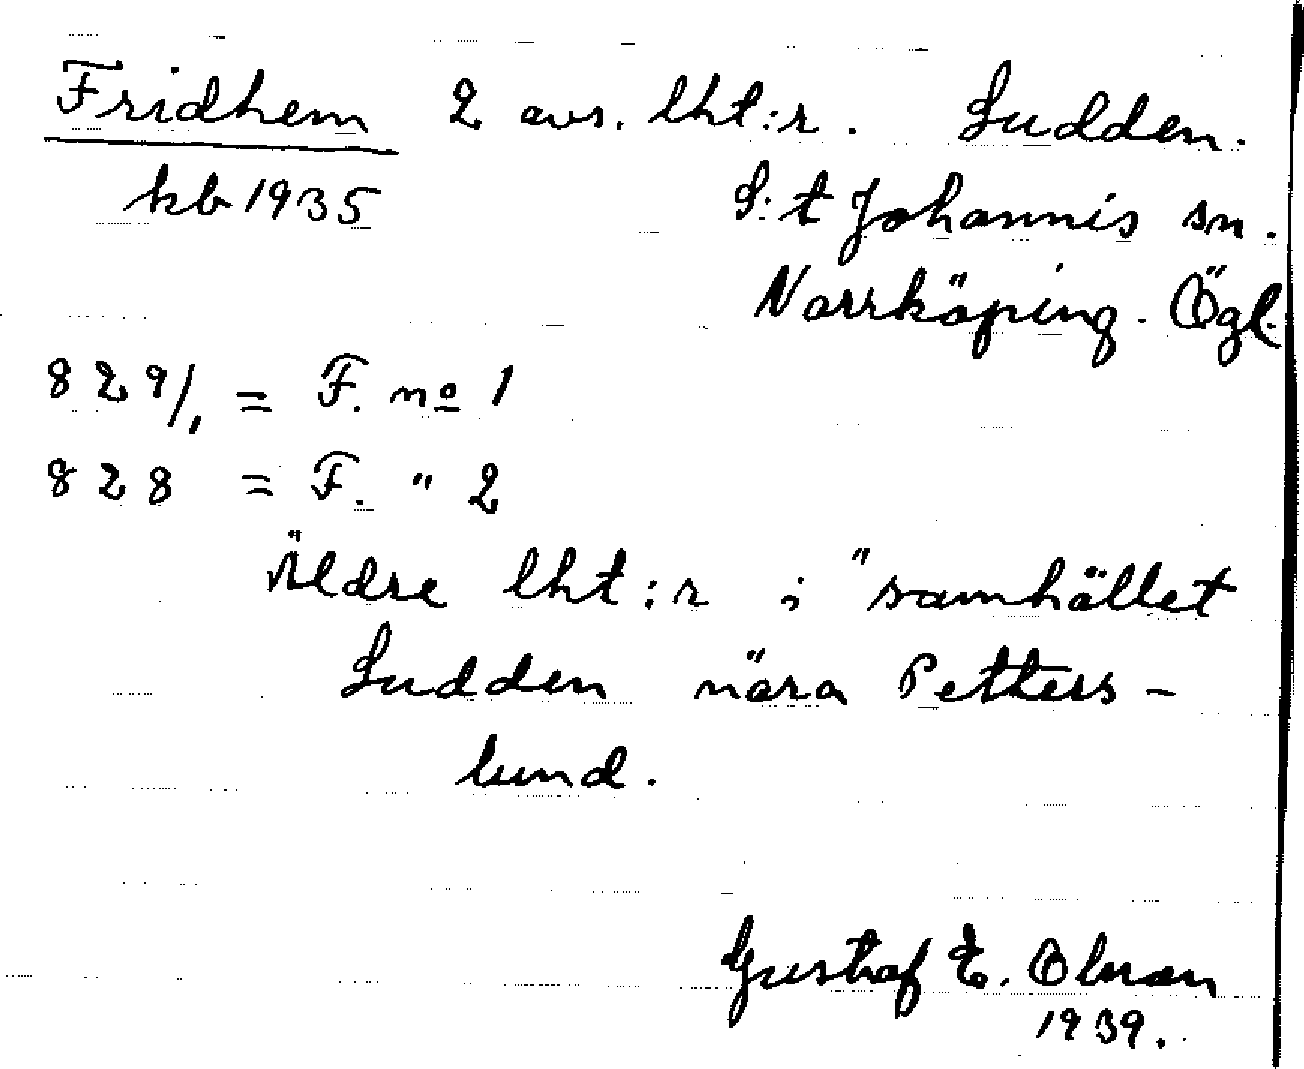 Fridhem 2 avs. lht:r. Sudden.
kb 1935 S:t Johannis sn.
Norrköping. Ögl.
829/1 = F. no 1
828 = F. " 2
Äldre lht:r i "samhället
Sudden nära Petters-
lund.
Gustaf E. Olsson
1939.